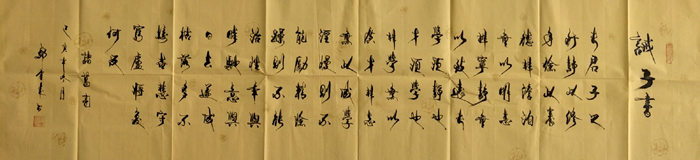 誡子書
夫君子之
行靜以修
身儉以養
德非澹泊
無以明志
非寧靜無
以致遠夫
學須靜也
才須學也
非學無以
廣才非志
無以成學
淫慢則不
能勵精險
躁則不能
治性年與
時馳意與
日去遂成
枯落多不
接世悲守
窮廬將復
何及
諸葛亮
己亥年冬月
書